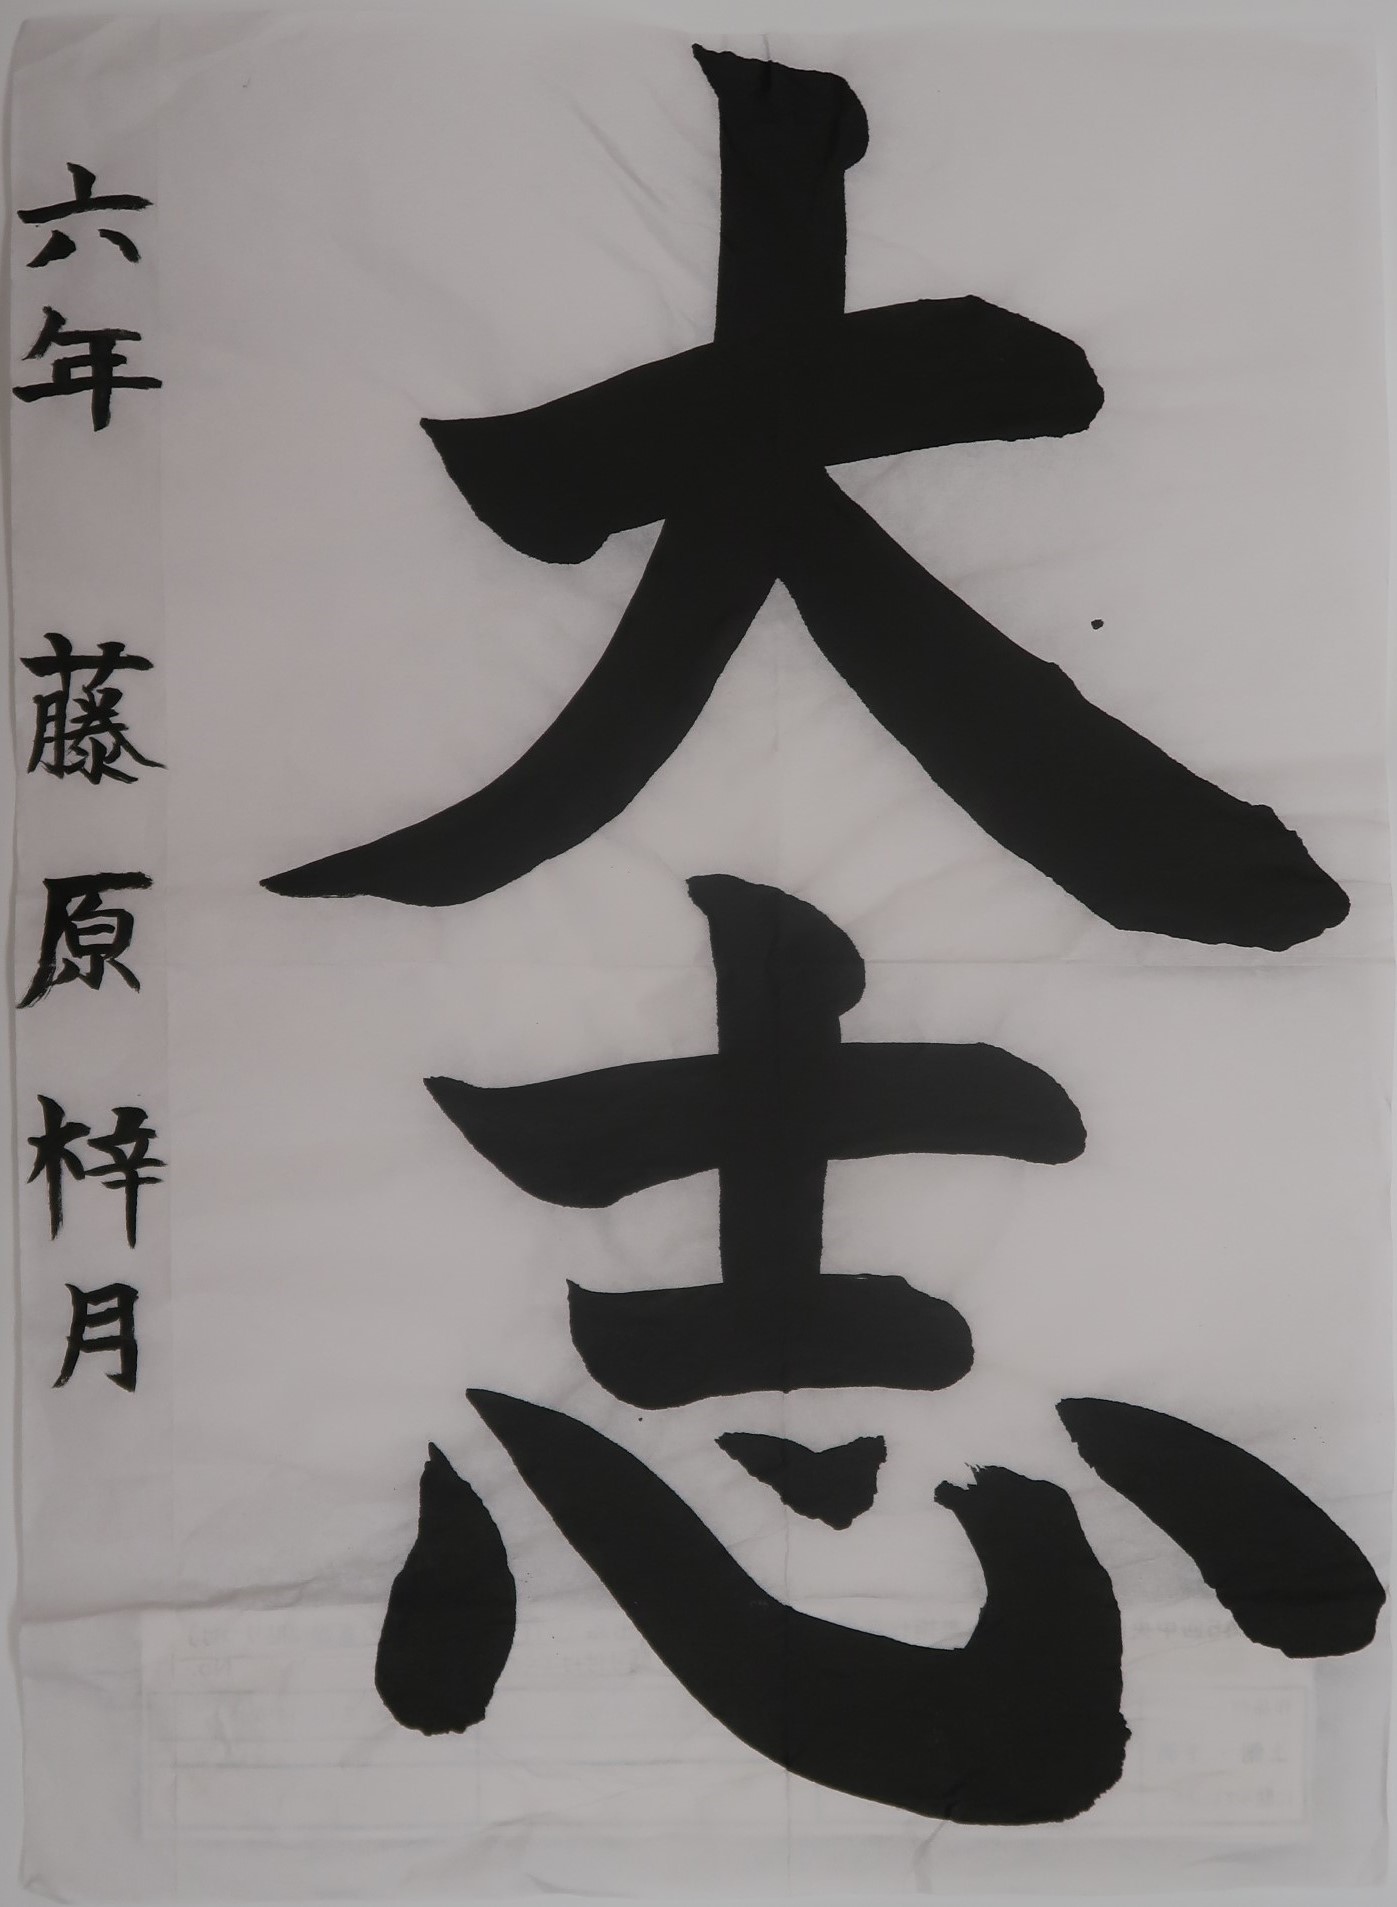 大志
六年 藤原梓月